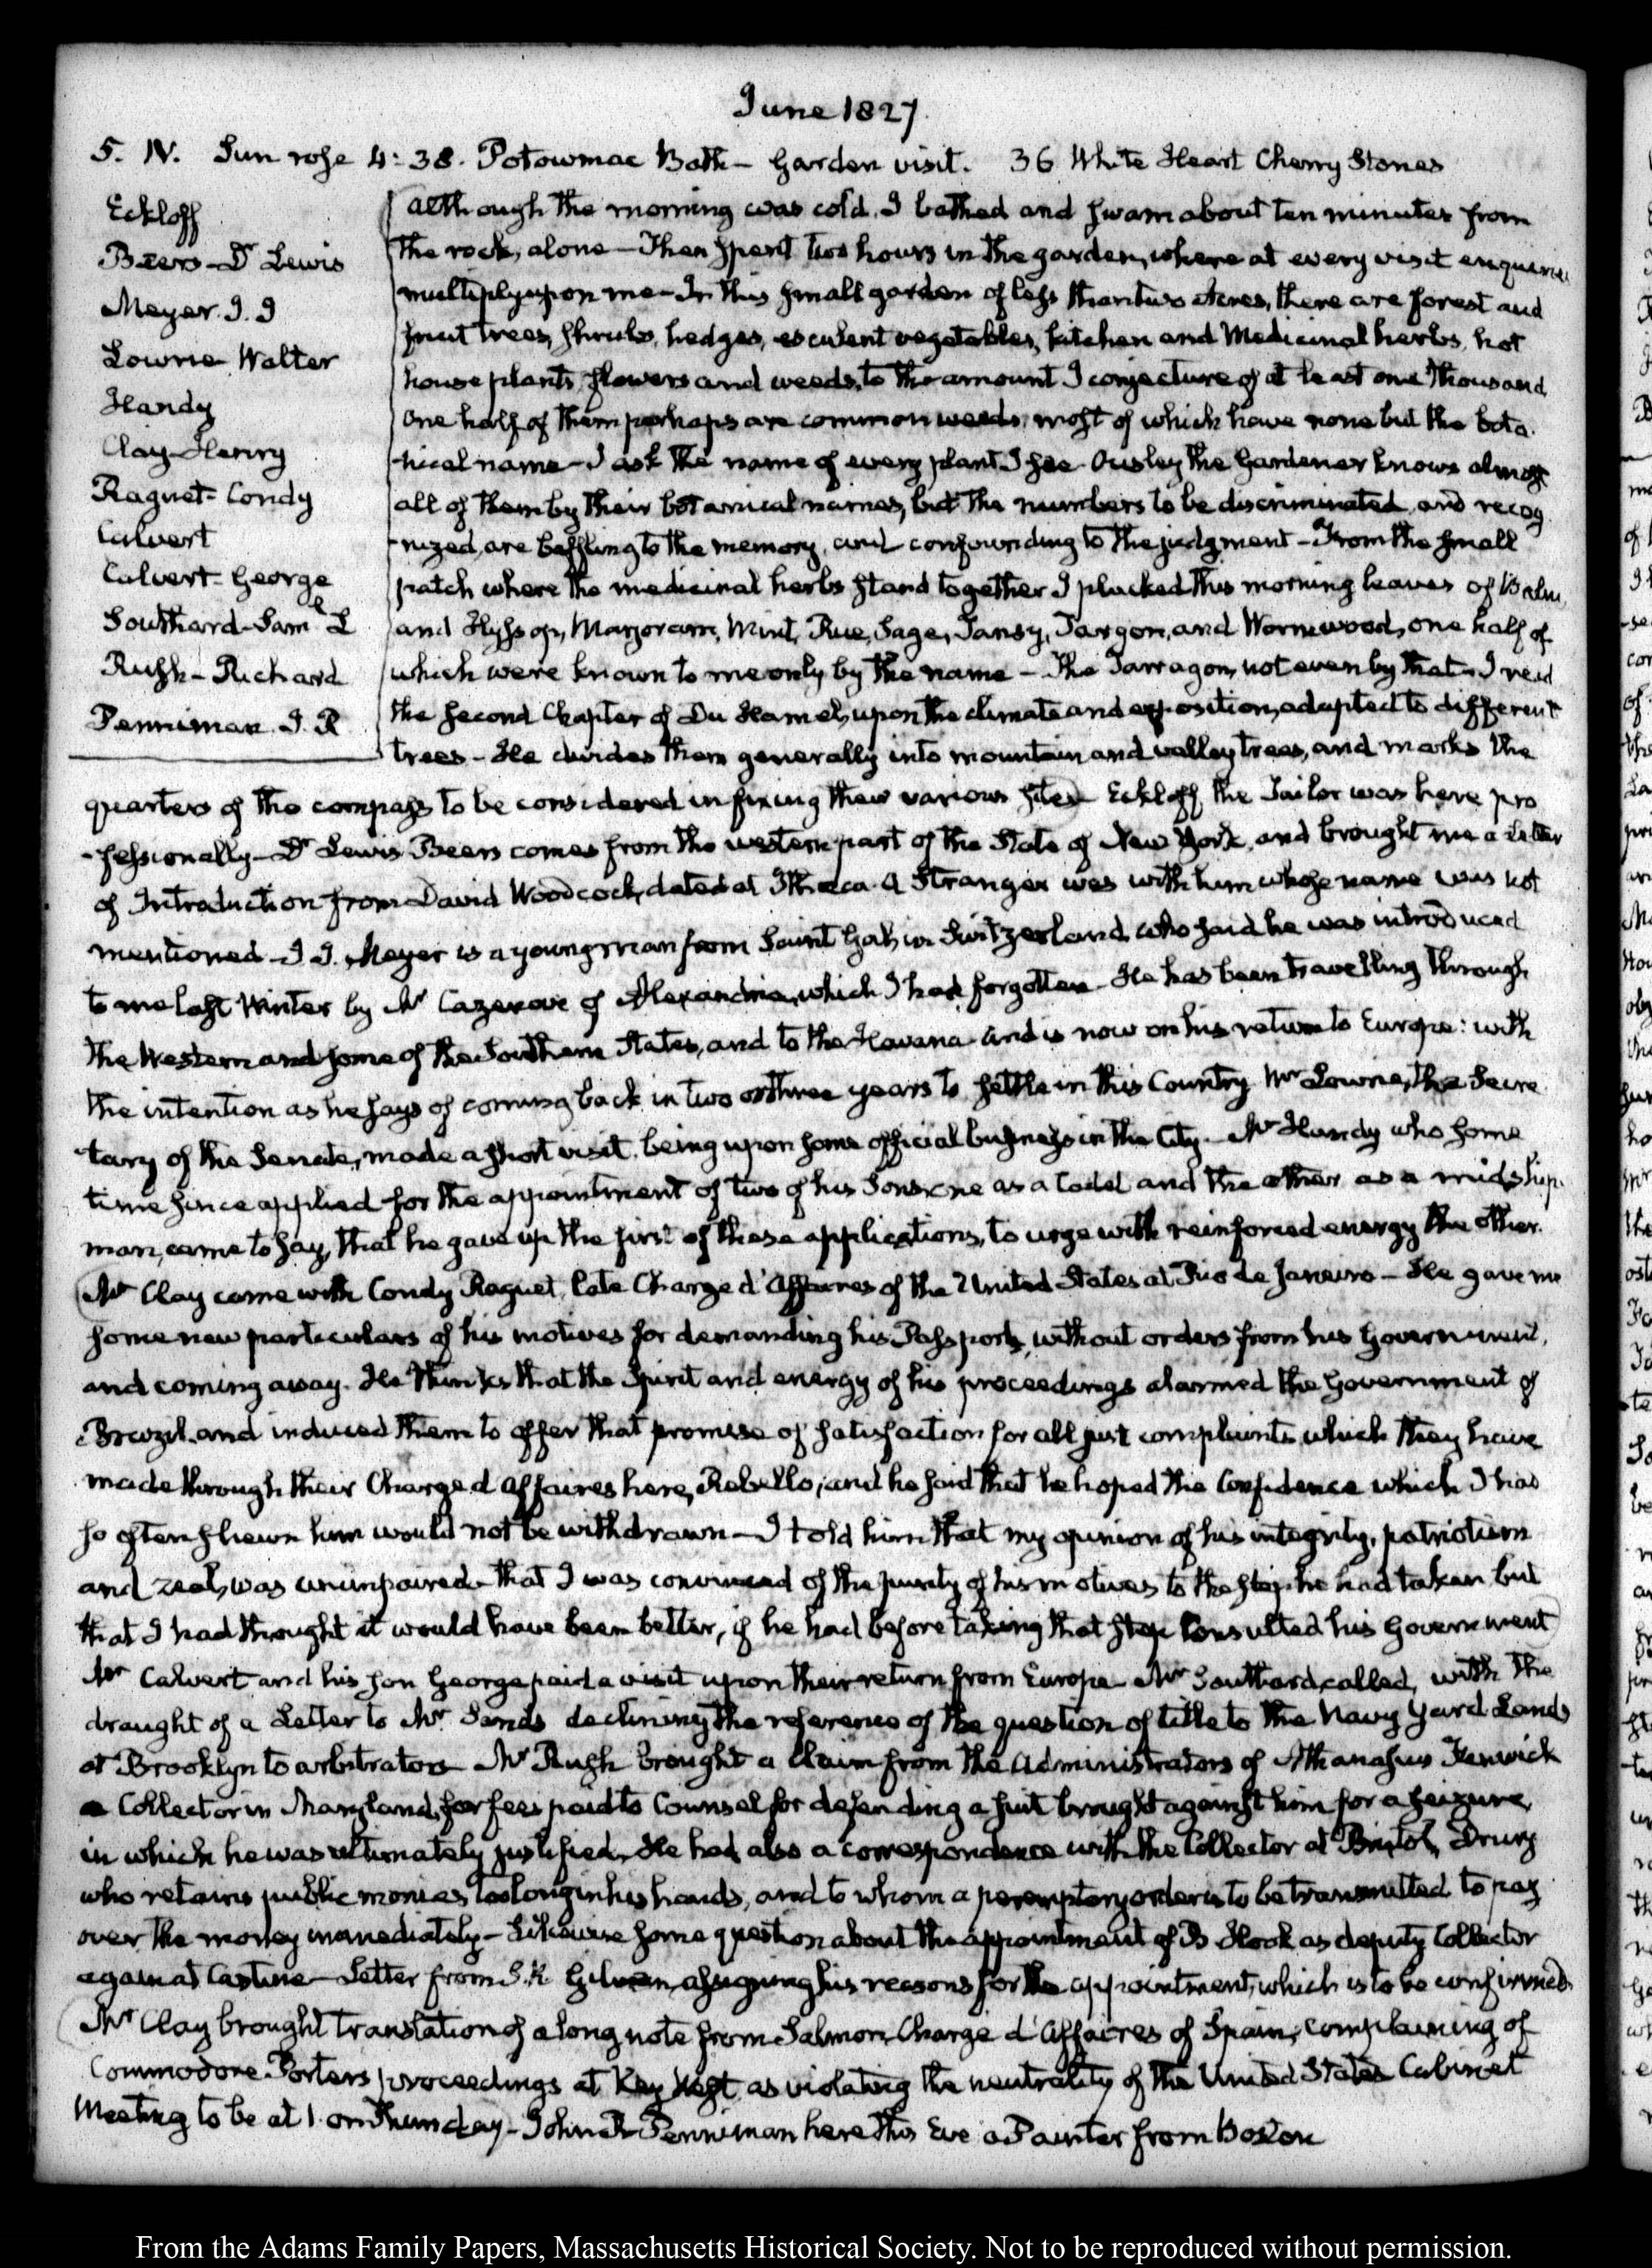 June 1827.
5. IV. Sun rose 4:38. Potowmac Bath – Garden visit. 36 White Heart Cherry Stones
Eckloff
Beers – Dr Lewis
Meyer. J. J
Lowrie Walter
Handy
Clay – Henry
Raguet – Condy
Calvert
Calvert – George
Southard – Saml L
Rush – Richard
Penniman. J. R
Although the morning was cold, I bathed and swam about ten minutes from
the rock, alone – Then spent two hours in the garden, where at every visit enquiries
multiply upon me – In this small garden of less than two Acres, there are forest and
fruit trees, shrubs, hedges, esculent vegetables, kitchen and Medicinal herbs, hot
house plants, flowers and weeds, to the amount I conjecture of at least one thousand,
one half of them perhaps are common weeds, most of which have none but the bota-
-nical name – I ask the name of every plant I see. Ousley the Gardener knows almost
all of them by their botanical names, but the numbers to be discriminated, and recog
-nized, are baffling to the memory, and confounding to the judgment – From the small
patch where the medicinal herbs stand together I plucked this morning leaves of Balm
and Hyssop, Marjoram, Mint, Rue, Sage, Tansy, Targon, and Wormwood, one half of
which were known to me only by the name – The Tarragon, not even by that – I read
the second Chapter of Du Hamel, upon the climate and exposition, adapted to different
trees – He divides them generally into mountain and valley trees, and marks the
quarters of the compass to be considered in fixing their various sites – Eckloff the Tailor was here pro
-fessionally – Dr Lewis Beers comes from the western part of the State of New York, and brought me a Letter
of Introduction from David Woodcock, dated at Ithaca. A Stranger was with him whose name was not
mentioned – J. J. Meyer is a young man from Saint Gall, in Switzerland, who said he was introduced
to me last Winter by Mr Cazenove of Alexandria, which I had forgotten – He has been travelling through
the Western and some of the Southern States, and to the Havana and is now on his return to Europe: with
the intention as he says of coming back in two or three years to settle in this Country. Mr Lowrie, the Secre
tary of the Senate, made a short visit, being upon some official business in the City. – Mr Handy who some
time since applied for the appointment of two of his Sons, one as a Cadet and the other as a midship-
man, came to say, that he gave up the first of these applications, to urge with reinforced energy the other.
Mr Clay came with Condy Raguet, late Chargé d'Affaires of the United States at Rio de Janeiro – He gave me
some new particulars of his motives for demanding his Passports, without orders from his Government,
and coming away. He thinks that the Spirit and energy of his proceedings alarmed the Government of
Brazil, and induced them to offer that promise of satisfaction for all just complaints, which they have
made through their Chargé d'Affaires here, Rebello; and he said that he hoped the Confidence which I had
so often shewn him would not be withdrawn – I told him that my opinion of his integrity, patriotism
and zeal, was unimpaired – that I was convinced of the purity of his motives to the step he had taken but
that I had thought it would have been better, if he had before taking that step consulted his Government
Mr Calvert and his son George paid a visit upon their return from Europe – Mr Southard called, with the
draught of a Letter to Mr Sands declining the reference of the question of title to the Navy Yard Lands
at Brooklyn to arbitrators – Mr Rush brought a claim from the Administrators of Athanasius Fenwick
a Collector in Maryland, for fees paid to Counsel for defending a suit brought against him for a seizure,
in which he was ultimately justified. He had also a correspondence with the Collector at Bristol, Drury
who retains public monies too long in his hands, and to whom a peremptory order is to be transmitted to pay
over the money immediately – Likewise some question about the appointment of B Hook as deputy Collector
again at Castine – Letter from S. K. Gilman, assigning his reasons for the appointment, which is to be confirmed.
Mr Clay brought translation of a long note from Salmon, Chargé d'Affaires of Spain, complaining of
Commodore Porters proceedings at Key West as violating the neutrality of the United States Cabinet
Meeting to be at 1 on Thursday – John R Penniman here this Eve a Painter from Boston
From the Adams Family Papers, Massachusetts Historical Society. Not to be reproduced without permission.